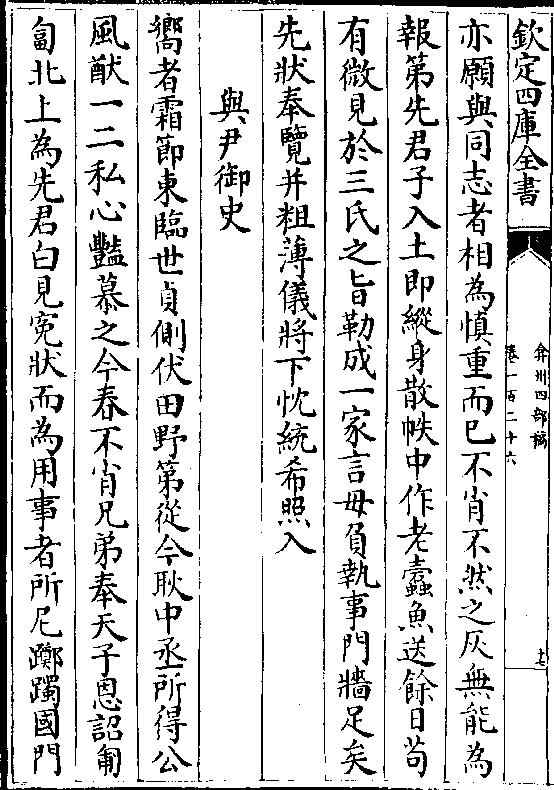 欽定四庫全書
弇州四部稿
卷一百二十六
十七
亦願與同志者相為慎重而已不肖不然之灰無能為
報第先君子入土即縱身散帙中作老蠹魚送餘日苟
有微見於三氏之旨勒成一家言毋負執事門牆足矣
先狀奉覽并粗薄儀將下忱統希照入
與尹御史
嚮者霜節東臨世貞側伏田野第從今耿中丞所得公
風猷一二私心豔慕之今春不肖兄弟奉天子恩詔匍
匐北上為先君白見寃狀而為用事者所尼躑躅國門